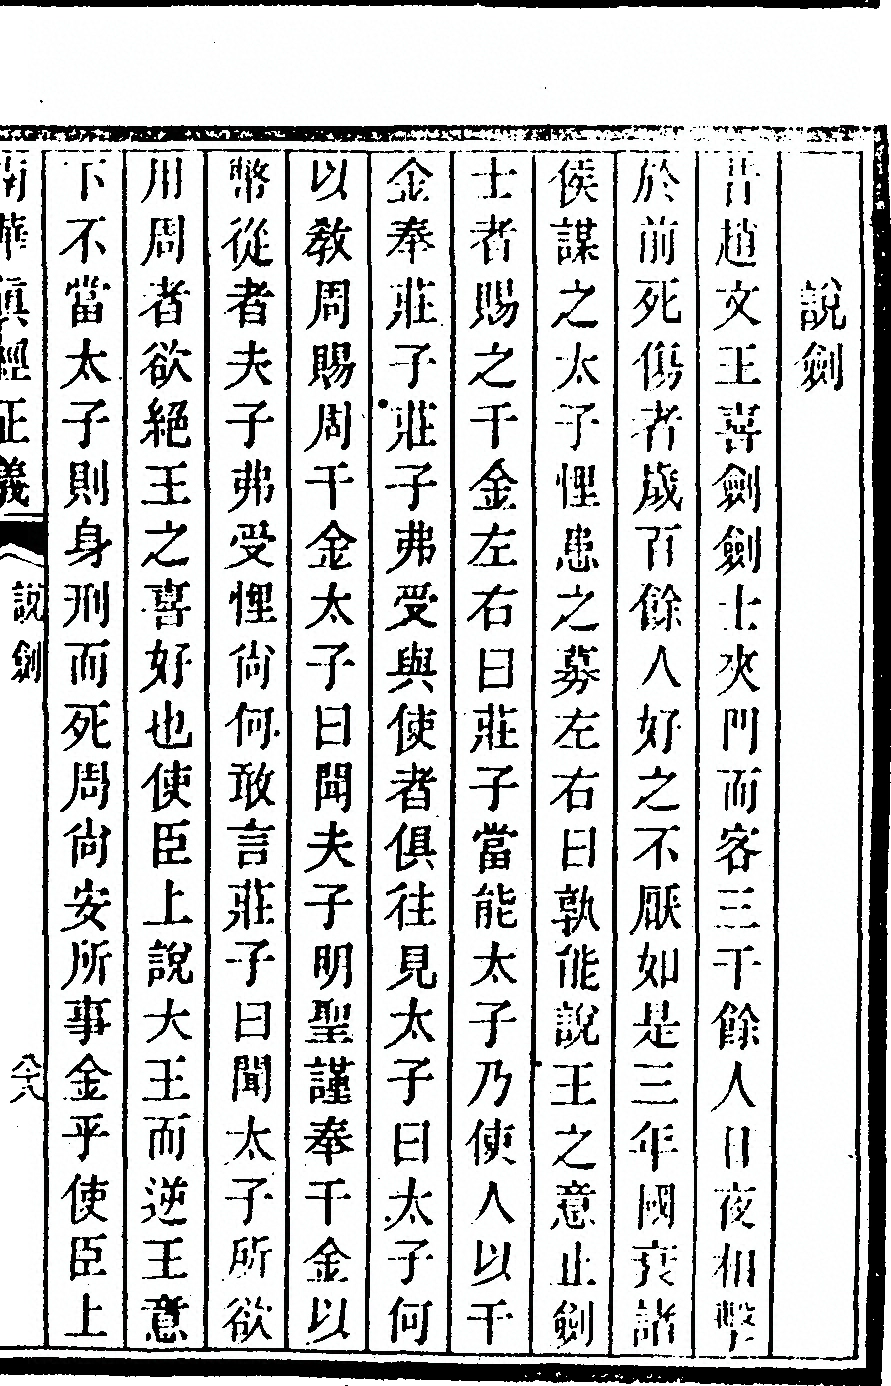 說劍
昔趙文王喜劍劍士夾門而客三千餘人日夜相擊
於前死傷者歲百餘人好之不厭如是三年國衰諸
侯謀之太子悝患之募左右曰孰能說王之意止劍
士者賜之千金左右曰莊子當能太子乃使人以千
金奉莊子莊子弗受與使者俱往見太子曰太子何
以敎周賜周千金太子曰聞夫子明聖謹奉千金以
幣從者夫子弗受悝尙何敢言莊子曰聞太子所欲
用周者欲絕王之喜好也使臣上說大王而逆王意
下不當太子則身刑而死周尙安所事金乎使臣上
南華眞經正義
說劍
八